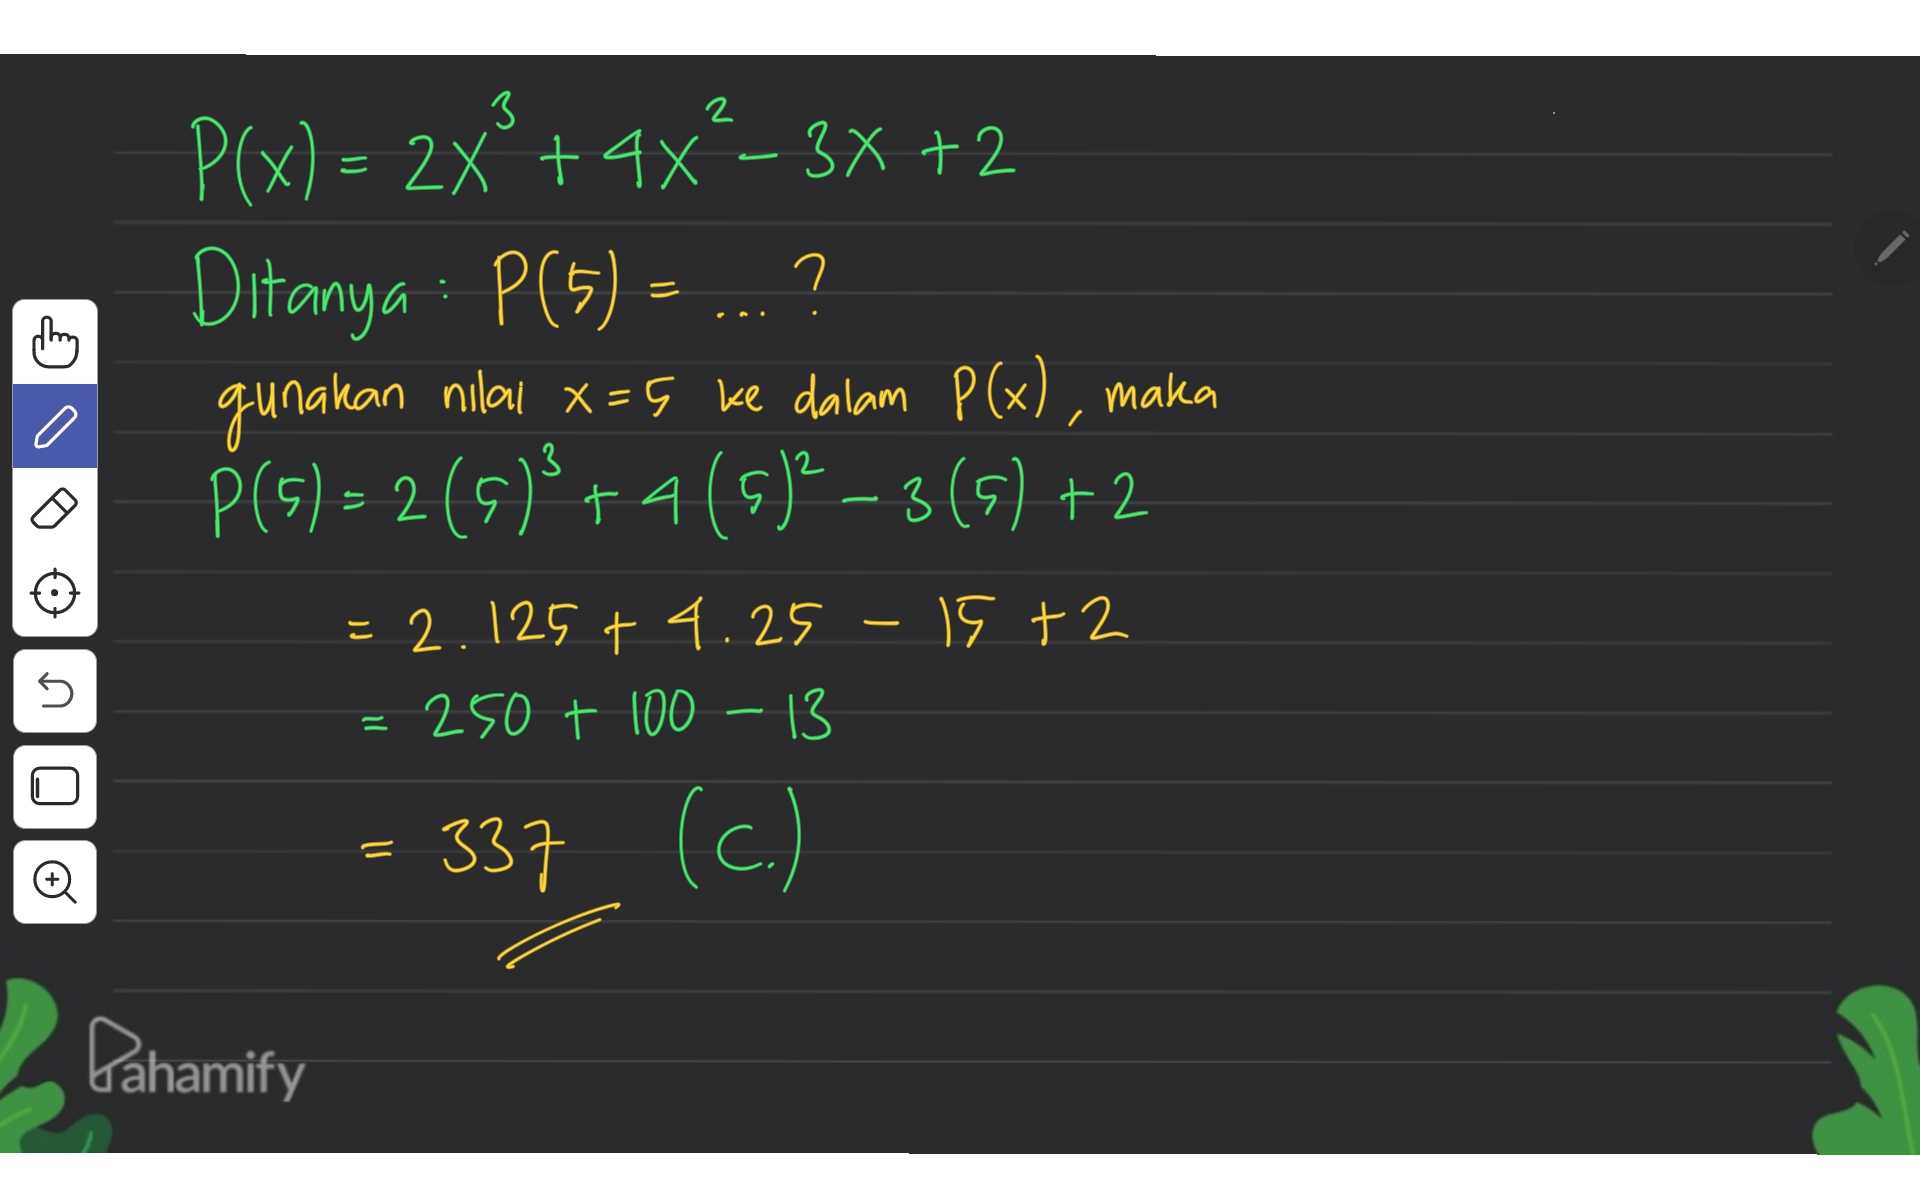 P(x) = 2x³ + 4x² - 3x + 2
Ditanya : P(5) = ... ?
gunakan nilai x = 5 ke dalam P(x), maka
P(5) = 2(5)³ + 4(5)² - 3(5) + 2
= 2.125 + 4.25 - 15 + 2
= 250 + 100 - 13
= 337 (C.)
Pahamify